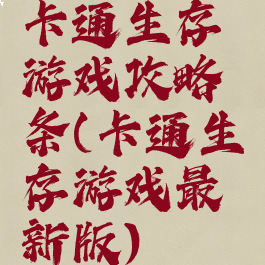 卡通生存
游戏攻略
条(卡通生
存游戏最
新版)